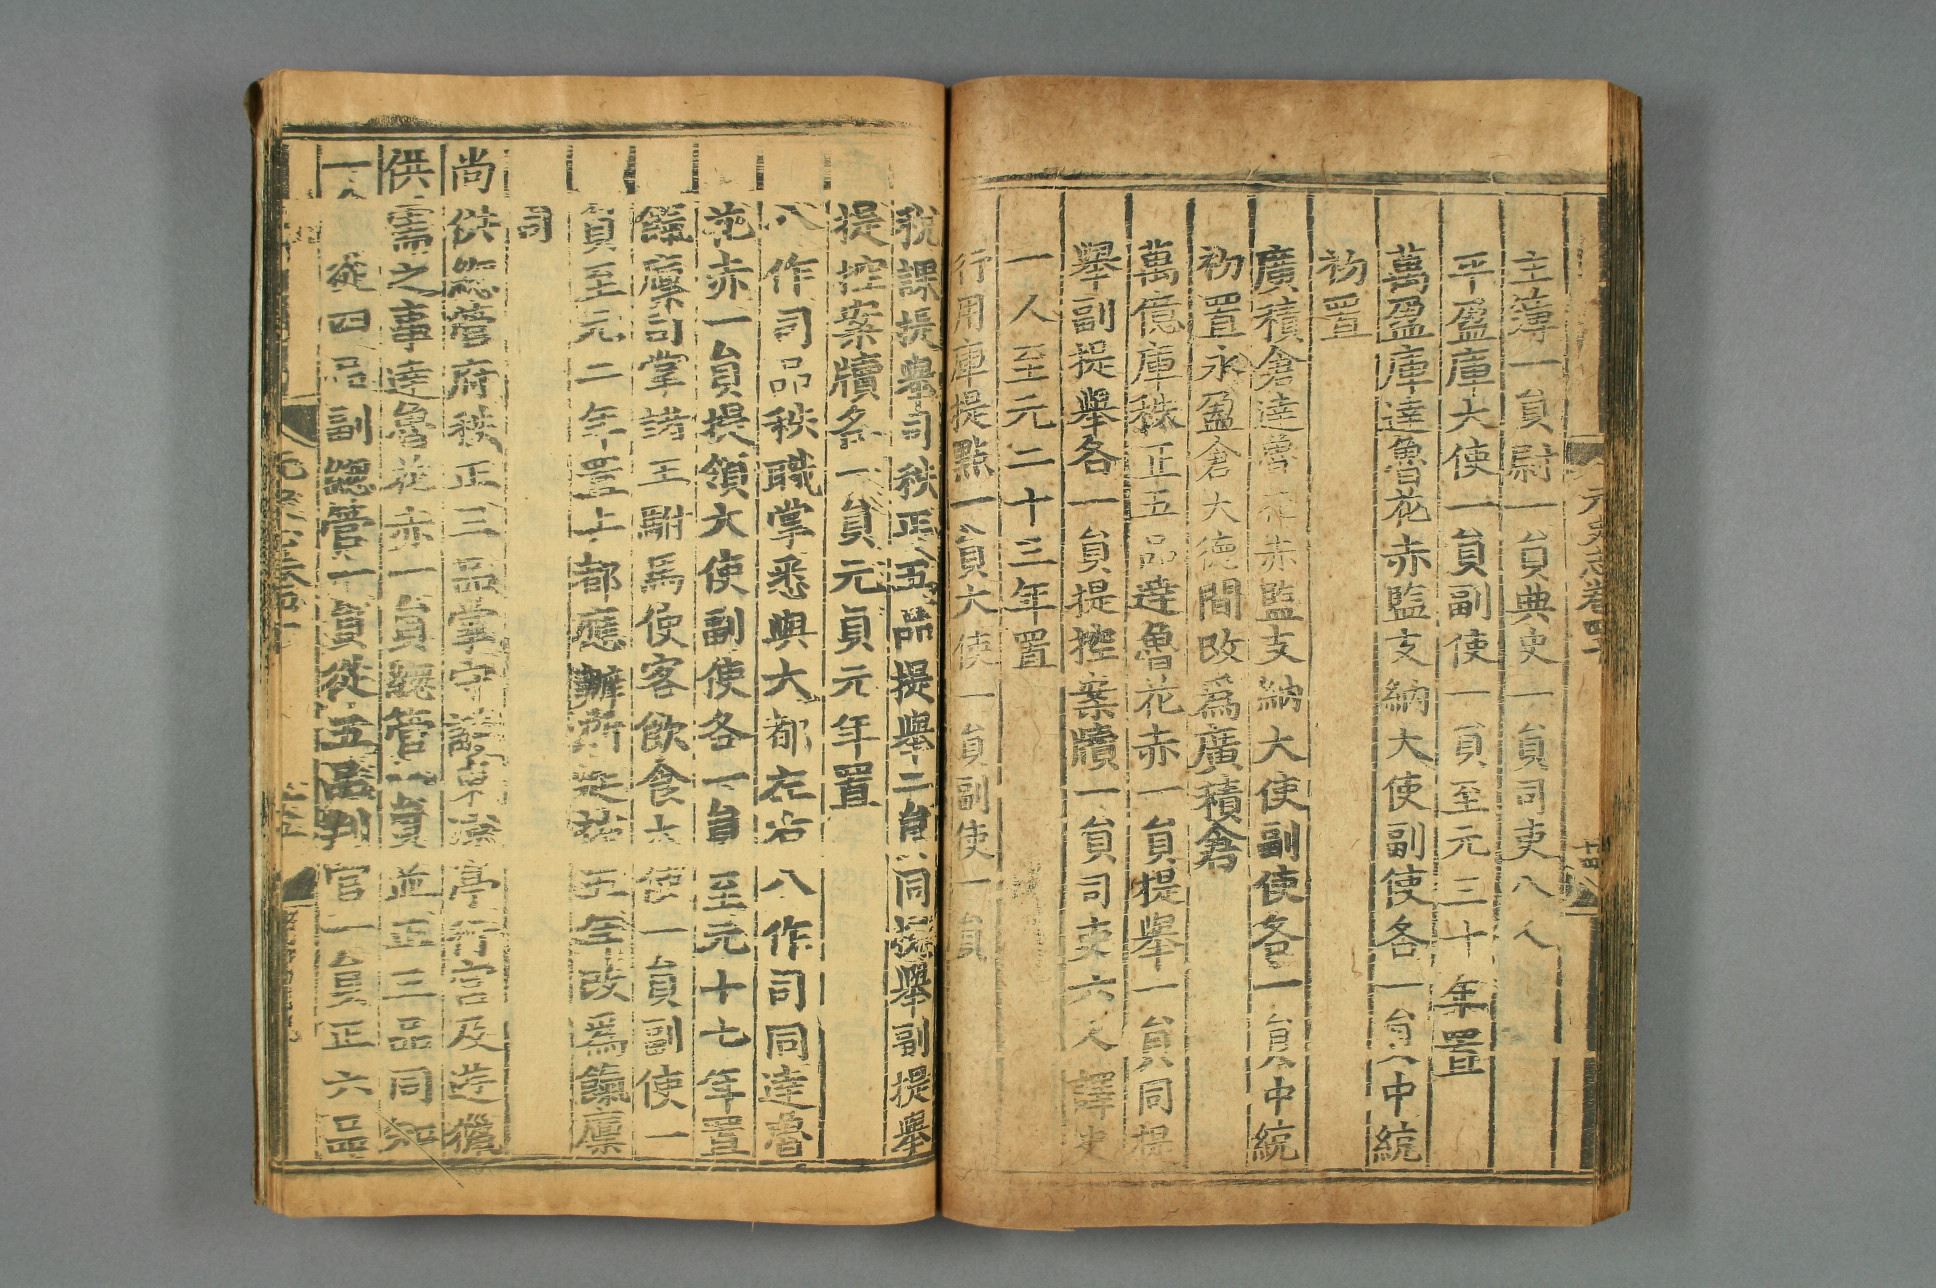 元史志卷四十
十四
主簿一員尉一員典史一員司吏八人
平盈庫大使一員副使一員至元三十年置
萬盈庫達魯花赤監支納大使副使各一員中統
初置
廣積倉達魯花赤監支納大使副使各一員中統
初置永盈倉大德間改爲廣積倉
萬億庫秩正五品達魯花赤一員提舉一員同提
舉副提舉各一員提控案牘一員司吏六人譯史
一人至元二十三年置
行用庫提點一員大使一員副使一員
稅課提舉司秩正五品提舉二員同提舉副提舉
提控案牘各一員元貞元年置
八作司品秩職掌悉與大都左右八作司同達魯
花赤一員提領大使副使各一員至元十七年置
餼廩司掌諸王駙馬使客飲食大使一員副使一
員至元二年置上都應辦所延祐五年改爲餼廩
司
尚供總管府秩正三品掌守護東涼亭行宮及遊獵
供需之事達魯花赤一員總管一員並正三品同知
一員從四品副總管一員從五品判官一員正六品
元史志卷四十
十五